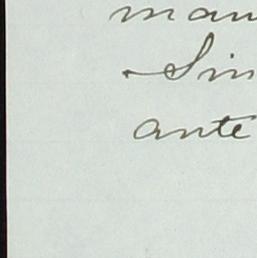 man
Sin
ante